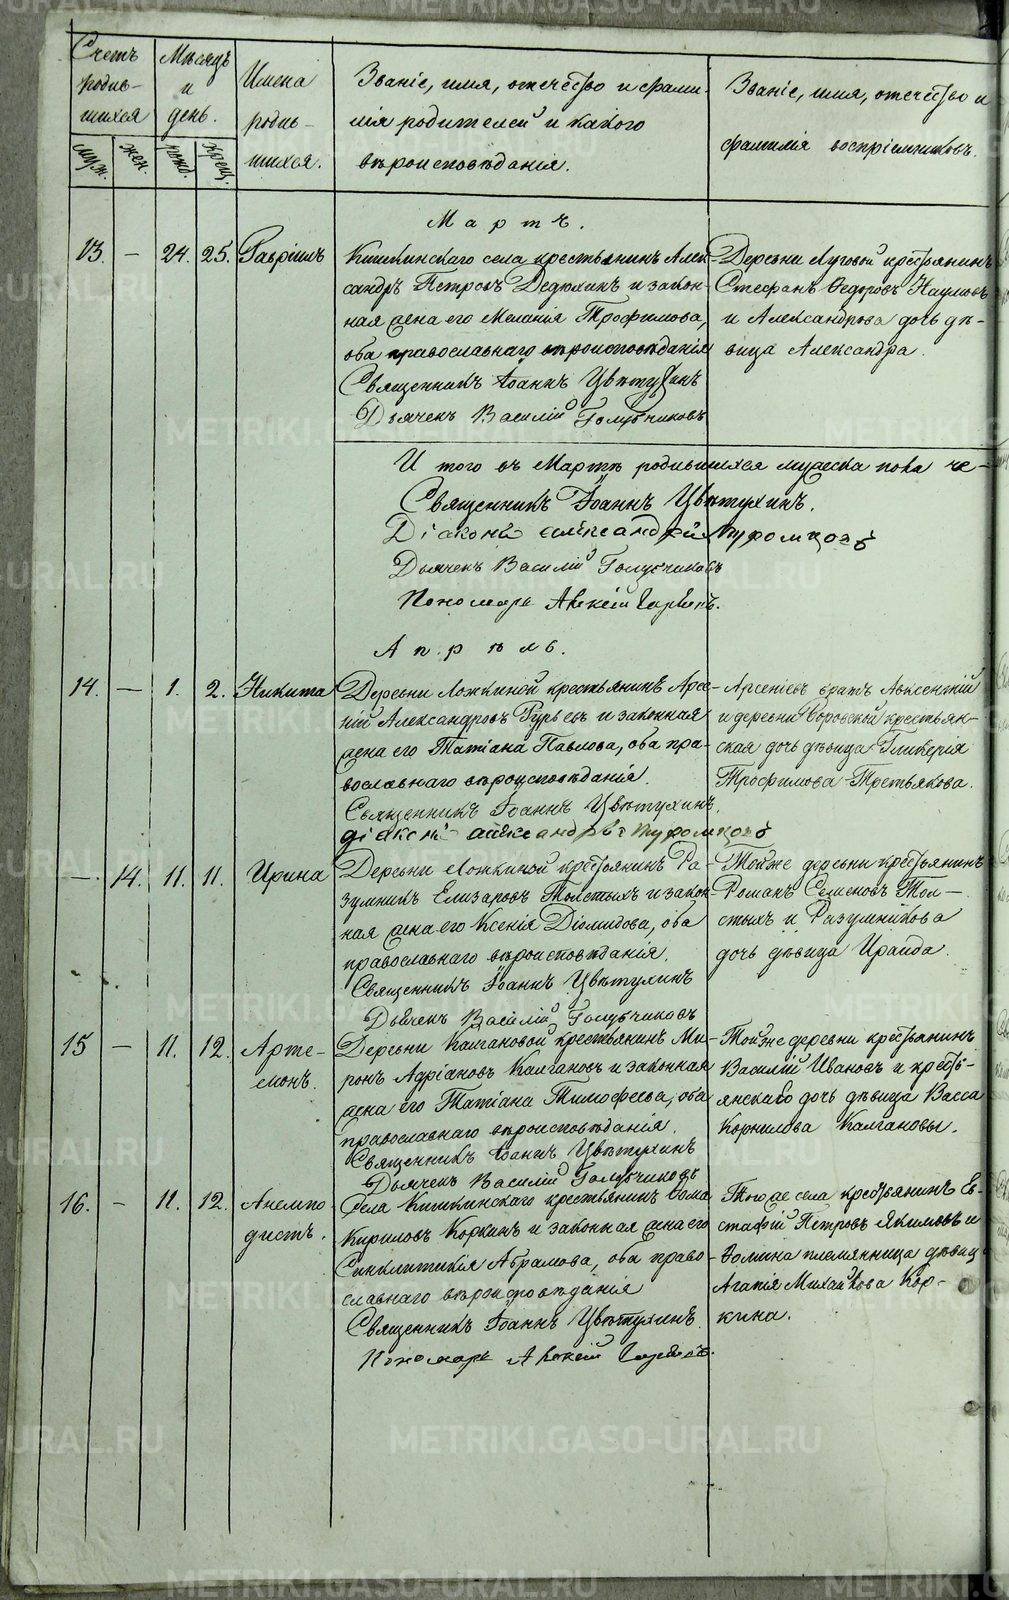 Счетъ родив-
шихся
Мѣсяцъ
и
день.
Имена
родив-
шихся.
Званіе, имя, отечество и фами-
лія родителей и какого
вѣроисповѣданія.
Званіе, имя, отечество и
фамилія воспріемниковъ.
муж.
жен.
рожд.
крещ.
Мартъ.
13. — 24. 25. Гавріилъ
Кишкинскаго села крестьянинъ Алек-
сандръ Петровъ Дедюхинъ и закон-
ная жена его Меланія Трофимова,
оба православнаго вѣроисповѣданія
Священникъ Іоаннъ Цвѣтухинъ
Дьячекъ Василій Голубчиковъ
Деревни Луговой крестьянинъ
Стефанъ Ѳедоровъ Наумовъ
и Александрова дочь дѣ-
вица Александра.
И того въ Мартѣ родившихся мужеска пола
Священникъ Іоаннъ Цвѣтухинъ.
Діаконъ Александръ
Дьячекъ Василій Голубчиковъ
Пономарь
Апрѣль.
14. — 1. 2. Никита
Деревни Ложкиной крестьянинъ Арсе-
ній Александровъ Гурьевъ и законная
жена его Татіана Павлова, оба пра-
вославнаго вѣроисповѣданія.
Священникъ Іоаннъ Цвѣтухинъ.
Діаконъ Александръ
Арсеніевъ братъ Авксентій
и деревни Боровской крестьян-
ская дочь дѣвица Гликерія
Трофимова Третьякова.
— 14. 11. 11. Ирина
Деревни Ложкиной крестьянинъ Ра-
зумникъ Елизаровъ Толстыхъ и закон-
ная жена его Ксенія Діомидова, оба
православнаго вѣроисповѣданія.
Священникъ Іоаннъ Цвѣтухинъ
Дьячекъ Василій Голубчиковъ
Тойже деревни крестьянинъ
Романъ Семеновъ Тол-
стыхъ и Разумникова
дочь дѣвица Ираида.
15 — 11. 12. Арте-
монъ.
Деревни Калгановой крестьянинъ Ми-
ронъ Адріановъ Калгановъ и законная
жена его Татіана Тимофеева, оба
православнаго вѣроисповѣданія.
Священникъ Іоаннъ Цвѣтухинъ
Дьячекъ Василій Голубчиковъ
Тойже деревни крестьянинъ
Василій Ивановъ и кресть-
янская дочь дѣвица Васса
Корнилова Калгановы.
16. — 11. 12. Анемпо
дистъ.
Села Кишкинскаго крестьянинъ Ѳома
Кириловъ Коркинъ и законная жена его
Синклитикія Абрамова, оба право-
славнаго вѣроисповѣданія
Священникъ Іоаннъ Цвѣтухинъ
Пономарь
Того же села крестьянинъ Ев-
стафій Петровъ Якимовъ и
Ѳомина племянница дѣвица
Агапія Михайлова Кор-
кина.
METRIKI.GASO-URAL.RU